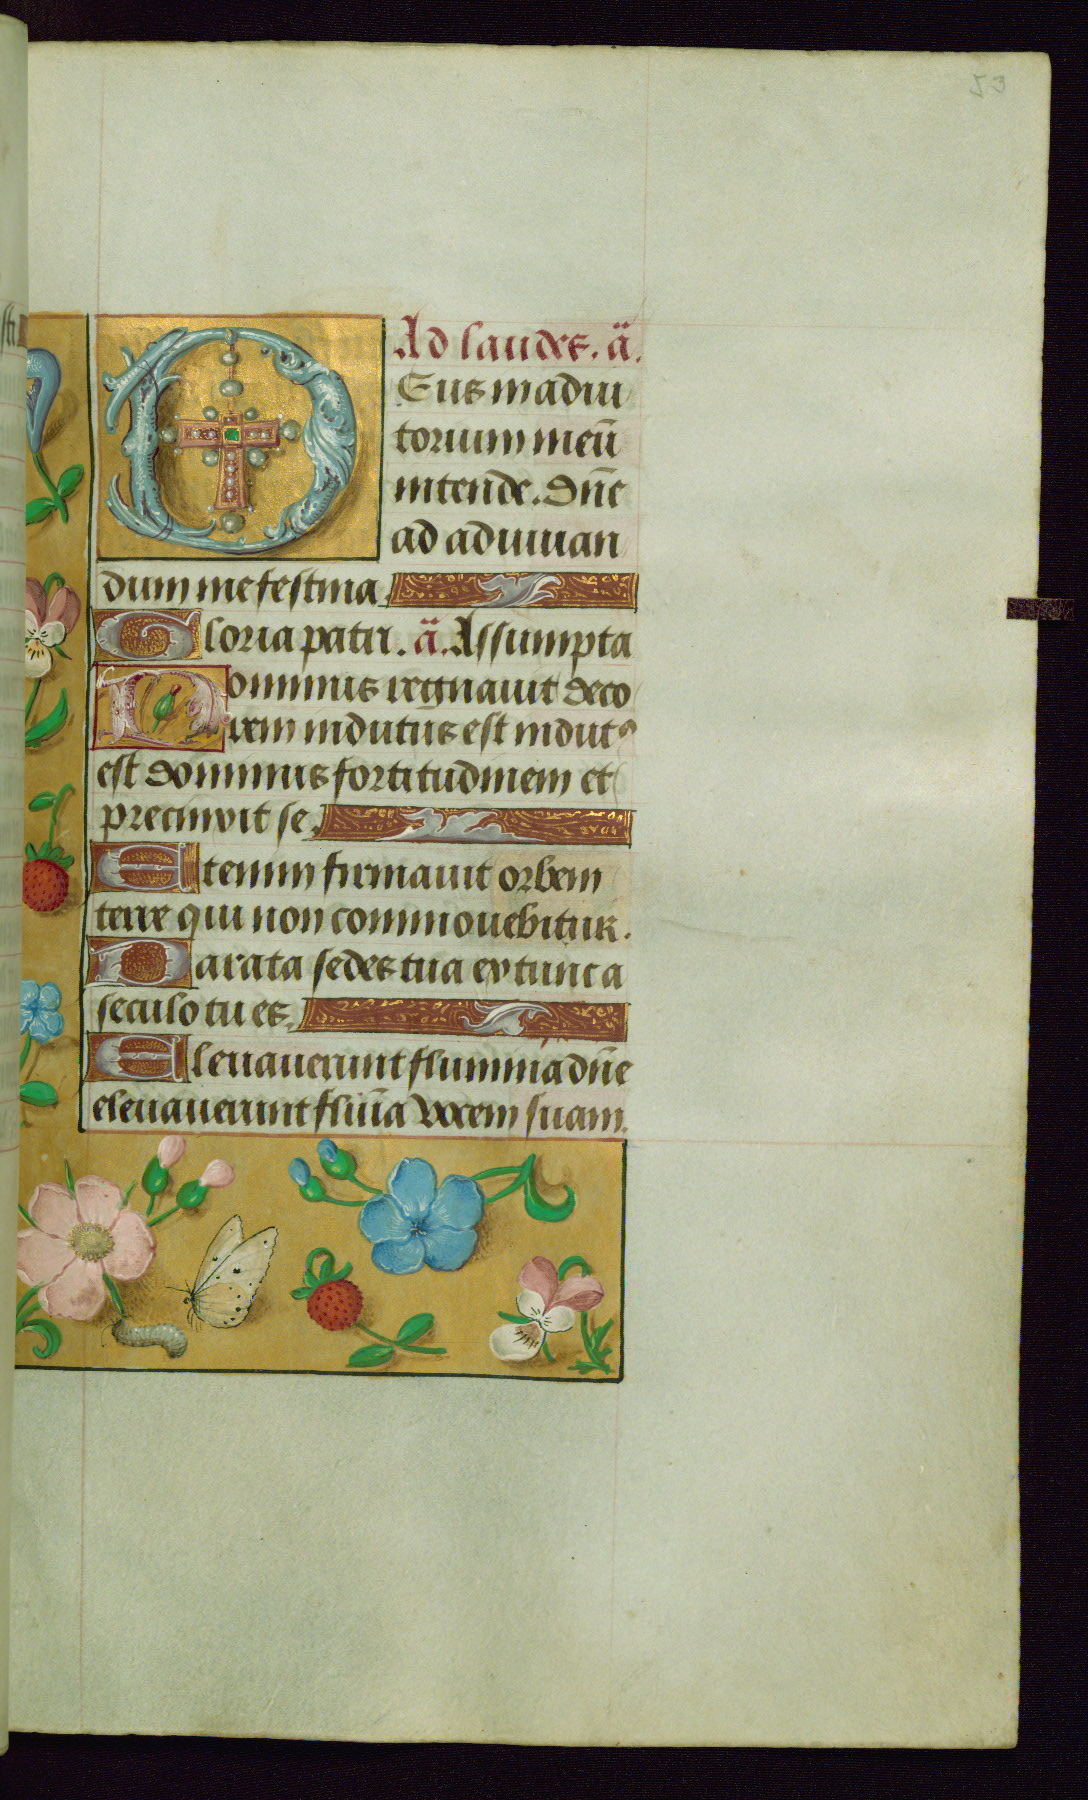 53
Ad laudes. a̅.
Deus in adiu
torium meu̅
intende. Dn̅e
ad adiuuan
dum me festina.
Gloria patri. a̅. Assumpta
Dominus regnauit deco
rem indutus est indutꝰ
est dominus fortitudinem et
precinxit se.
Etenim firmauit orbem
terre qui non commouebitur.
Parata sedes tua ex tunc a
seculo tu es.
Eleuauerunt flumina dn̅e
eleuauerunt flui̅a vocem suam.